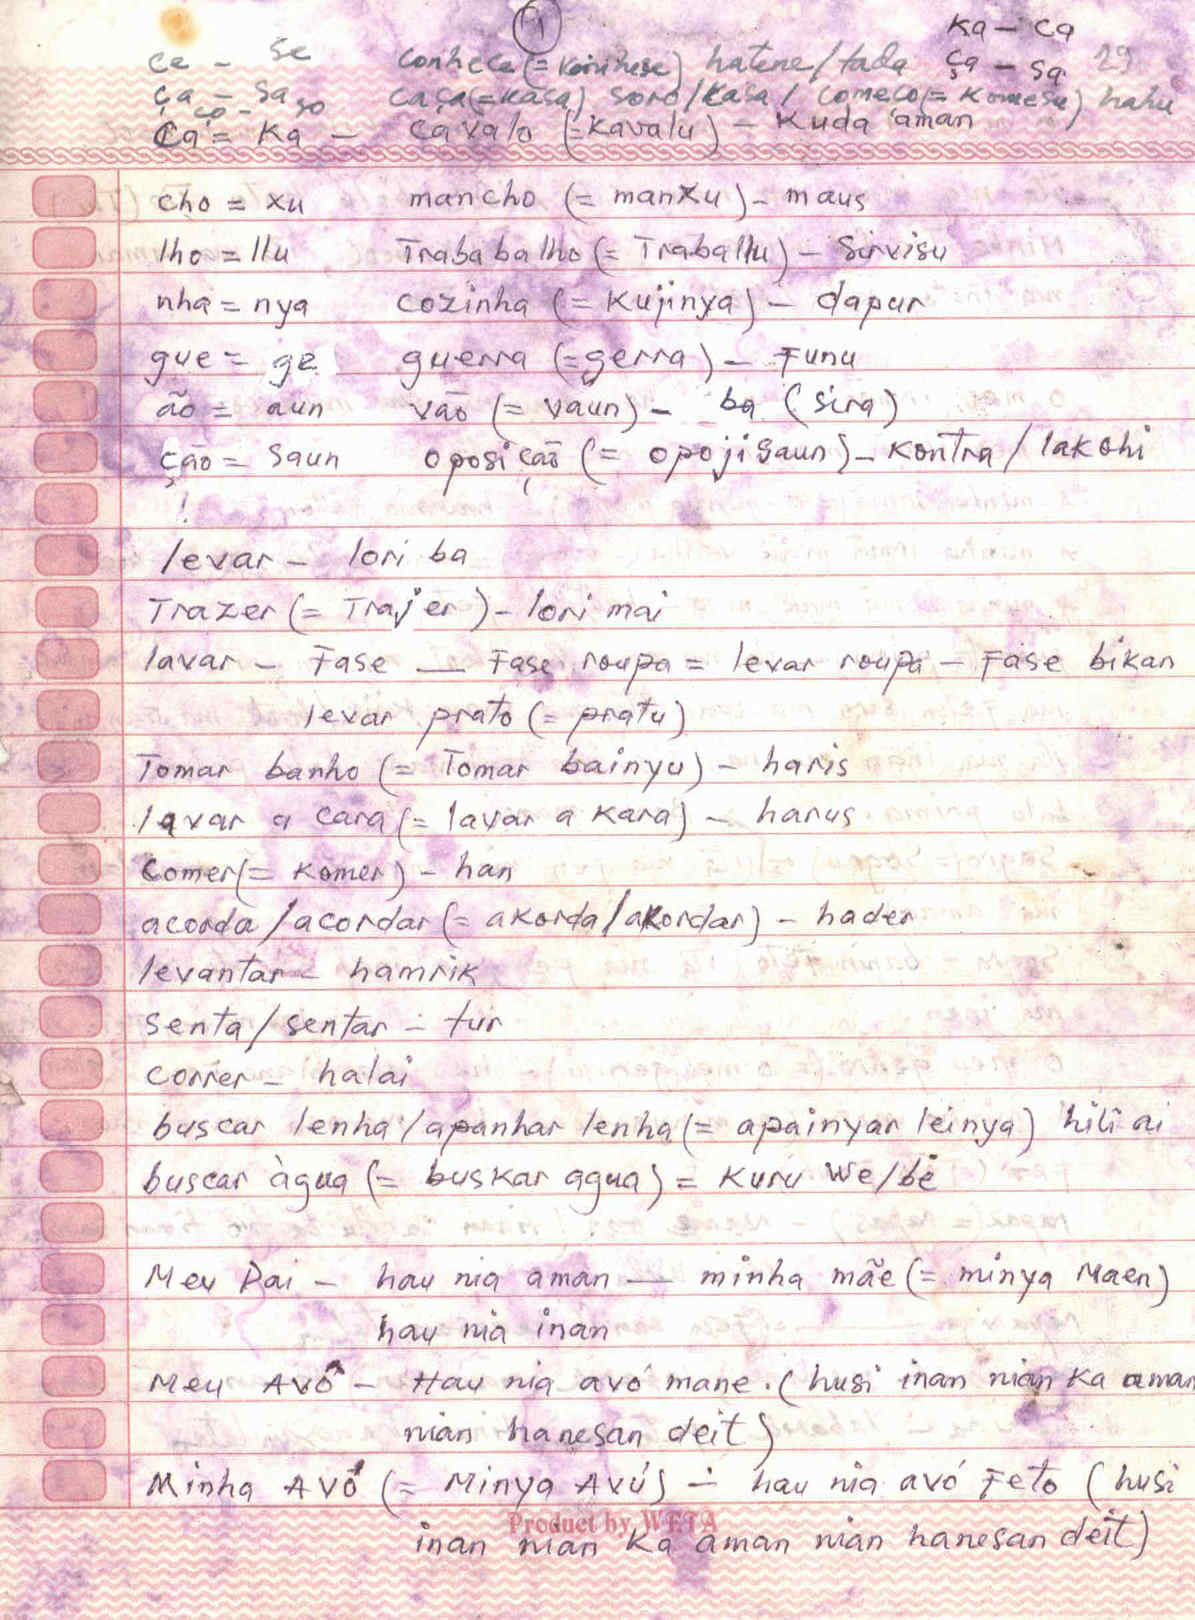 1
Ka - Ca
ce - se conhece (= konhese) hatene/tada ça - sa 29
ça - sa caça (= kasa) soro/kasa / começo (= komesu) hahu
ço - so
Ca = Ka - cavalo (= kavalu) - Kuda aman
cho = xu mancho (= manxu) - maus
lho = llu Trababalho (= Traballu) - Sirvisu
nha = nya cozinha (= Kujinya) - dapur
gue = ge guerra (= gerra) - Funu
ão = aun vão (= vaun) - ba (sira)
ção = saun oposição (= opojisaun) - Kontra / lakohi
!
levar - lori ba
Trazer (= Trajer) - lori mai
lavar - Fase — Fase roupa = levar roupa - Fase bikan
levar prato (= pratu)
Tomar banho (= Tomar bainyu) - haris
lavar a cara (= lavar a kara) - harus
Comer (= Komer) - han
acorda / acordar (= akorda / akordar) - hader
levantar - hamrik
senta / sentar - tur
correr - halai
buscar lenha / apanhar lenha (= apainyar leinya) hili ai
buscar àgua (= buskar agua) = Kuru We/bé
Meu Pai - hau nia aman — minha mãe (= minya Maen)
hau nia inan
Meu Avô - Hau nia avó mane. (husi inan nian Ka aman
nian hanesan deit)
Minha Avó (= Minya Avú) - hau nia avó Feto (husi
Product by WETA
inan nian Ka aman nian hanesan deit)